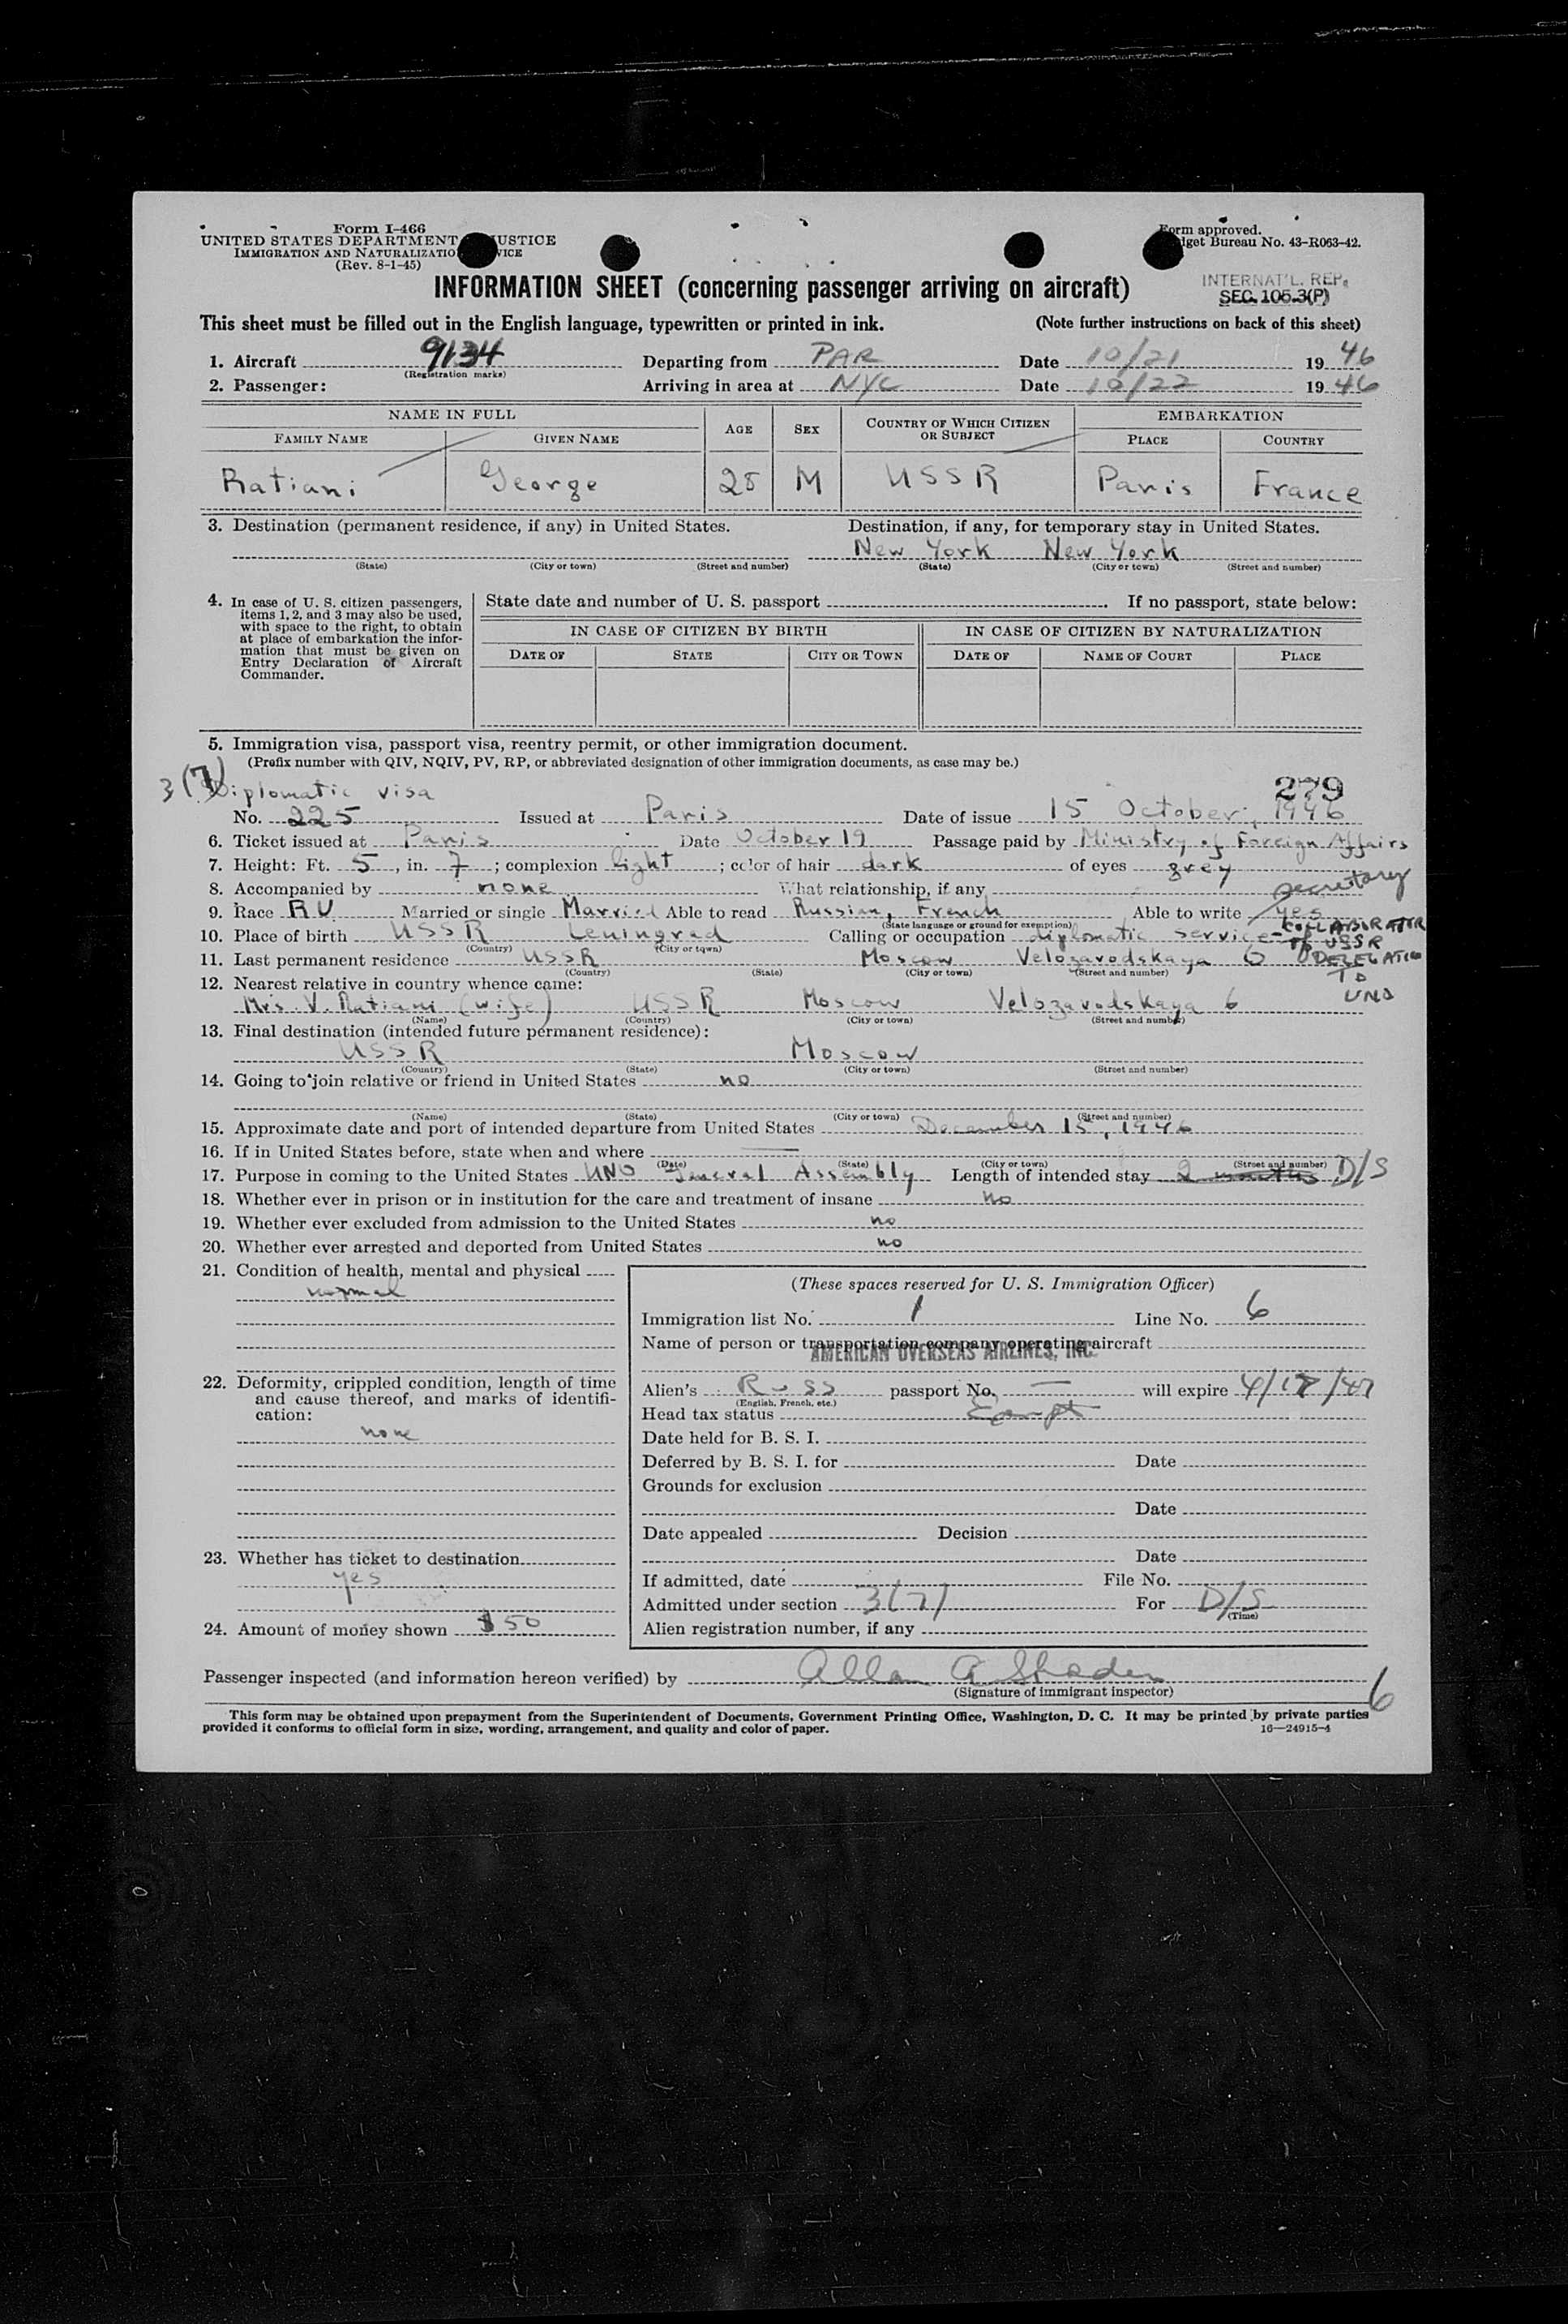 Form I-466
UNITED STATES DEPARTMENT USTICE
IMMIGRATION AND NATURALIZATIO VICE
(Rev. 8-1-45)
Form approved.
dget Bureau No. 43-R063-42.
INFORMATION SHEET (concerning passenger arriving on aircraft)
INTERNAT'L. REP.
SEC. 105.3(P)
This sheet must be filled out in the English language, typewritten or printed in ink. (Note further instructions on back of this sheet)
1. Aircraft 9134 Departing from PAR Date 10/21 1946
(Registration marks)
2. Passenger: Arriving in area at NYC Date 10/22 1946
NAME IN FULL AGE SEX COUNTRY OF WHICH CITIZEN OR SUBJECT EMBARKATION
FAMILY NAME GIVEN NAME PLACE COUNTRY
Ratiani George 28 M USSR Paris France
3. Destination (permanent residence, if any) in United States. Destination, if any, for temporary stay in United States.
New York New York
(State) (City or town) (Street and number) (State) (City or town) (Street and number)
4. In case of U. S. citizen passengers, items 1, 2, and 3 may also be used, with space to the right, to obtain at place of embarkation the information that must be given on Entry Declaration of Aircraft Commander.
State date and number of U. S. passport If no passport, state below:
IN CASE OF CITIZEN BY BIRTH IN CASE OF CITIZEN BY NATURALIZATION
DATE OF STATE CITY OR TOWN DATE OF NAME OF COURT PLACE
5. Immigration visa, passport visa, reentry permit, or other immigration document.
(Prefix number with QIV, NQIV, PV, RP, or abbreviated designation of other immigration documents, as case may be.)
3(7) Diplomatic visa 279
No. 225 Issued at Paris Date of issue 15 October, 1946
6. Ticket issued at Paris Date October 19 Passage paid by Ministry of Foreign Affairs
7. Height: Ft. 5, in. 7; complexion light; color of hair dark of eyes grey
8. Accompanied by none What relationship, if any
secretary
9. Race RU Married or single Married Able to read Russian, French Able to write yes
(State language or ground for exemption)
10. Place of birth USSR Leningrad Calling or occupation diplomatic service - COLLABORATOR TO USSR DELEGATION TO UNO
(Country) (City or town)
11. Last permanent residence USSR Moscow Velozavodskaya 6
(Country) (State) (City or town) (Street and number)
12. Nearest relative in country whence came:
Mrs. V. Ratiani (wife) USSR Moscow Velozavodskaya 6
(Name) (Country) (City or town) (Street and number)
13. Final destination (intended future permanent residence):
USSR Moscow
(Country) (State) (City or town) (Street and number)
14. Going to join relative or friend in United States no
(Name) (State) (City or town) (Street and number)
15. Approximate date and port of intended departure from United States December 15, 1946
16. If in United States before, state when and where
(Date) (State) (City or town) (Street and number)
17. Purpose in coming to the United States UNO General Assembly Length of intended stay 2 months D/S
18. Whether ever in prison or in institution for the care and treatment of insane no
19. Whether ever excluded from admission to the United States no
20. Whether ever arrested and deported from United States no
21. Condition of health, mental and physical
normal
22. Deformity, crippled condition, length of time and cause thereof, and marks of identification:
none
23. Whether has ticket to destination
yes
24. Amount of money shown $50
(These spaces reserved for U. S. Immigration Officer)
Immigration list No. 1 Line No. 6
Name of person or transportation company operating aircraft
AMERICAN OVERSEAS AIRLINES, INC.
Alien's Russ passport No. — will expire 4/17/47
(English, French, etc.)
Head tax status Exempt
Date held for B. S. I.
Deferred by B. S. I. for Date
Grounds for exclusion
Date
Date appealed Decision
Date
If admitted, date File No.
Admitted under section 3(7) For D/S
(Time)
Alien registration number, if any
Passenger inspected (and information hereon verified) by Allan A Shader
(Signature of immigrant inspector)
6
This form may be obtained upon prepayment from the Superintendent of Documents, Government Printing Office, Washington, D. C. It may be printed by private parties
provided it conforms to official form in size, wording, arrangement, and quality and color of paper. 16—24915-4